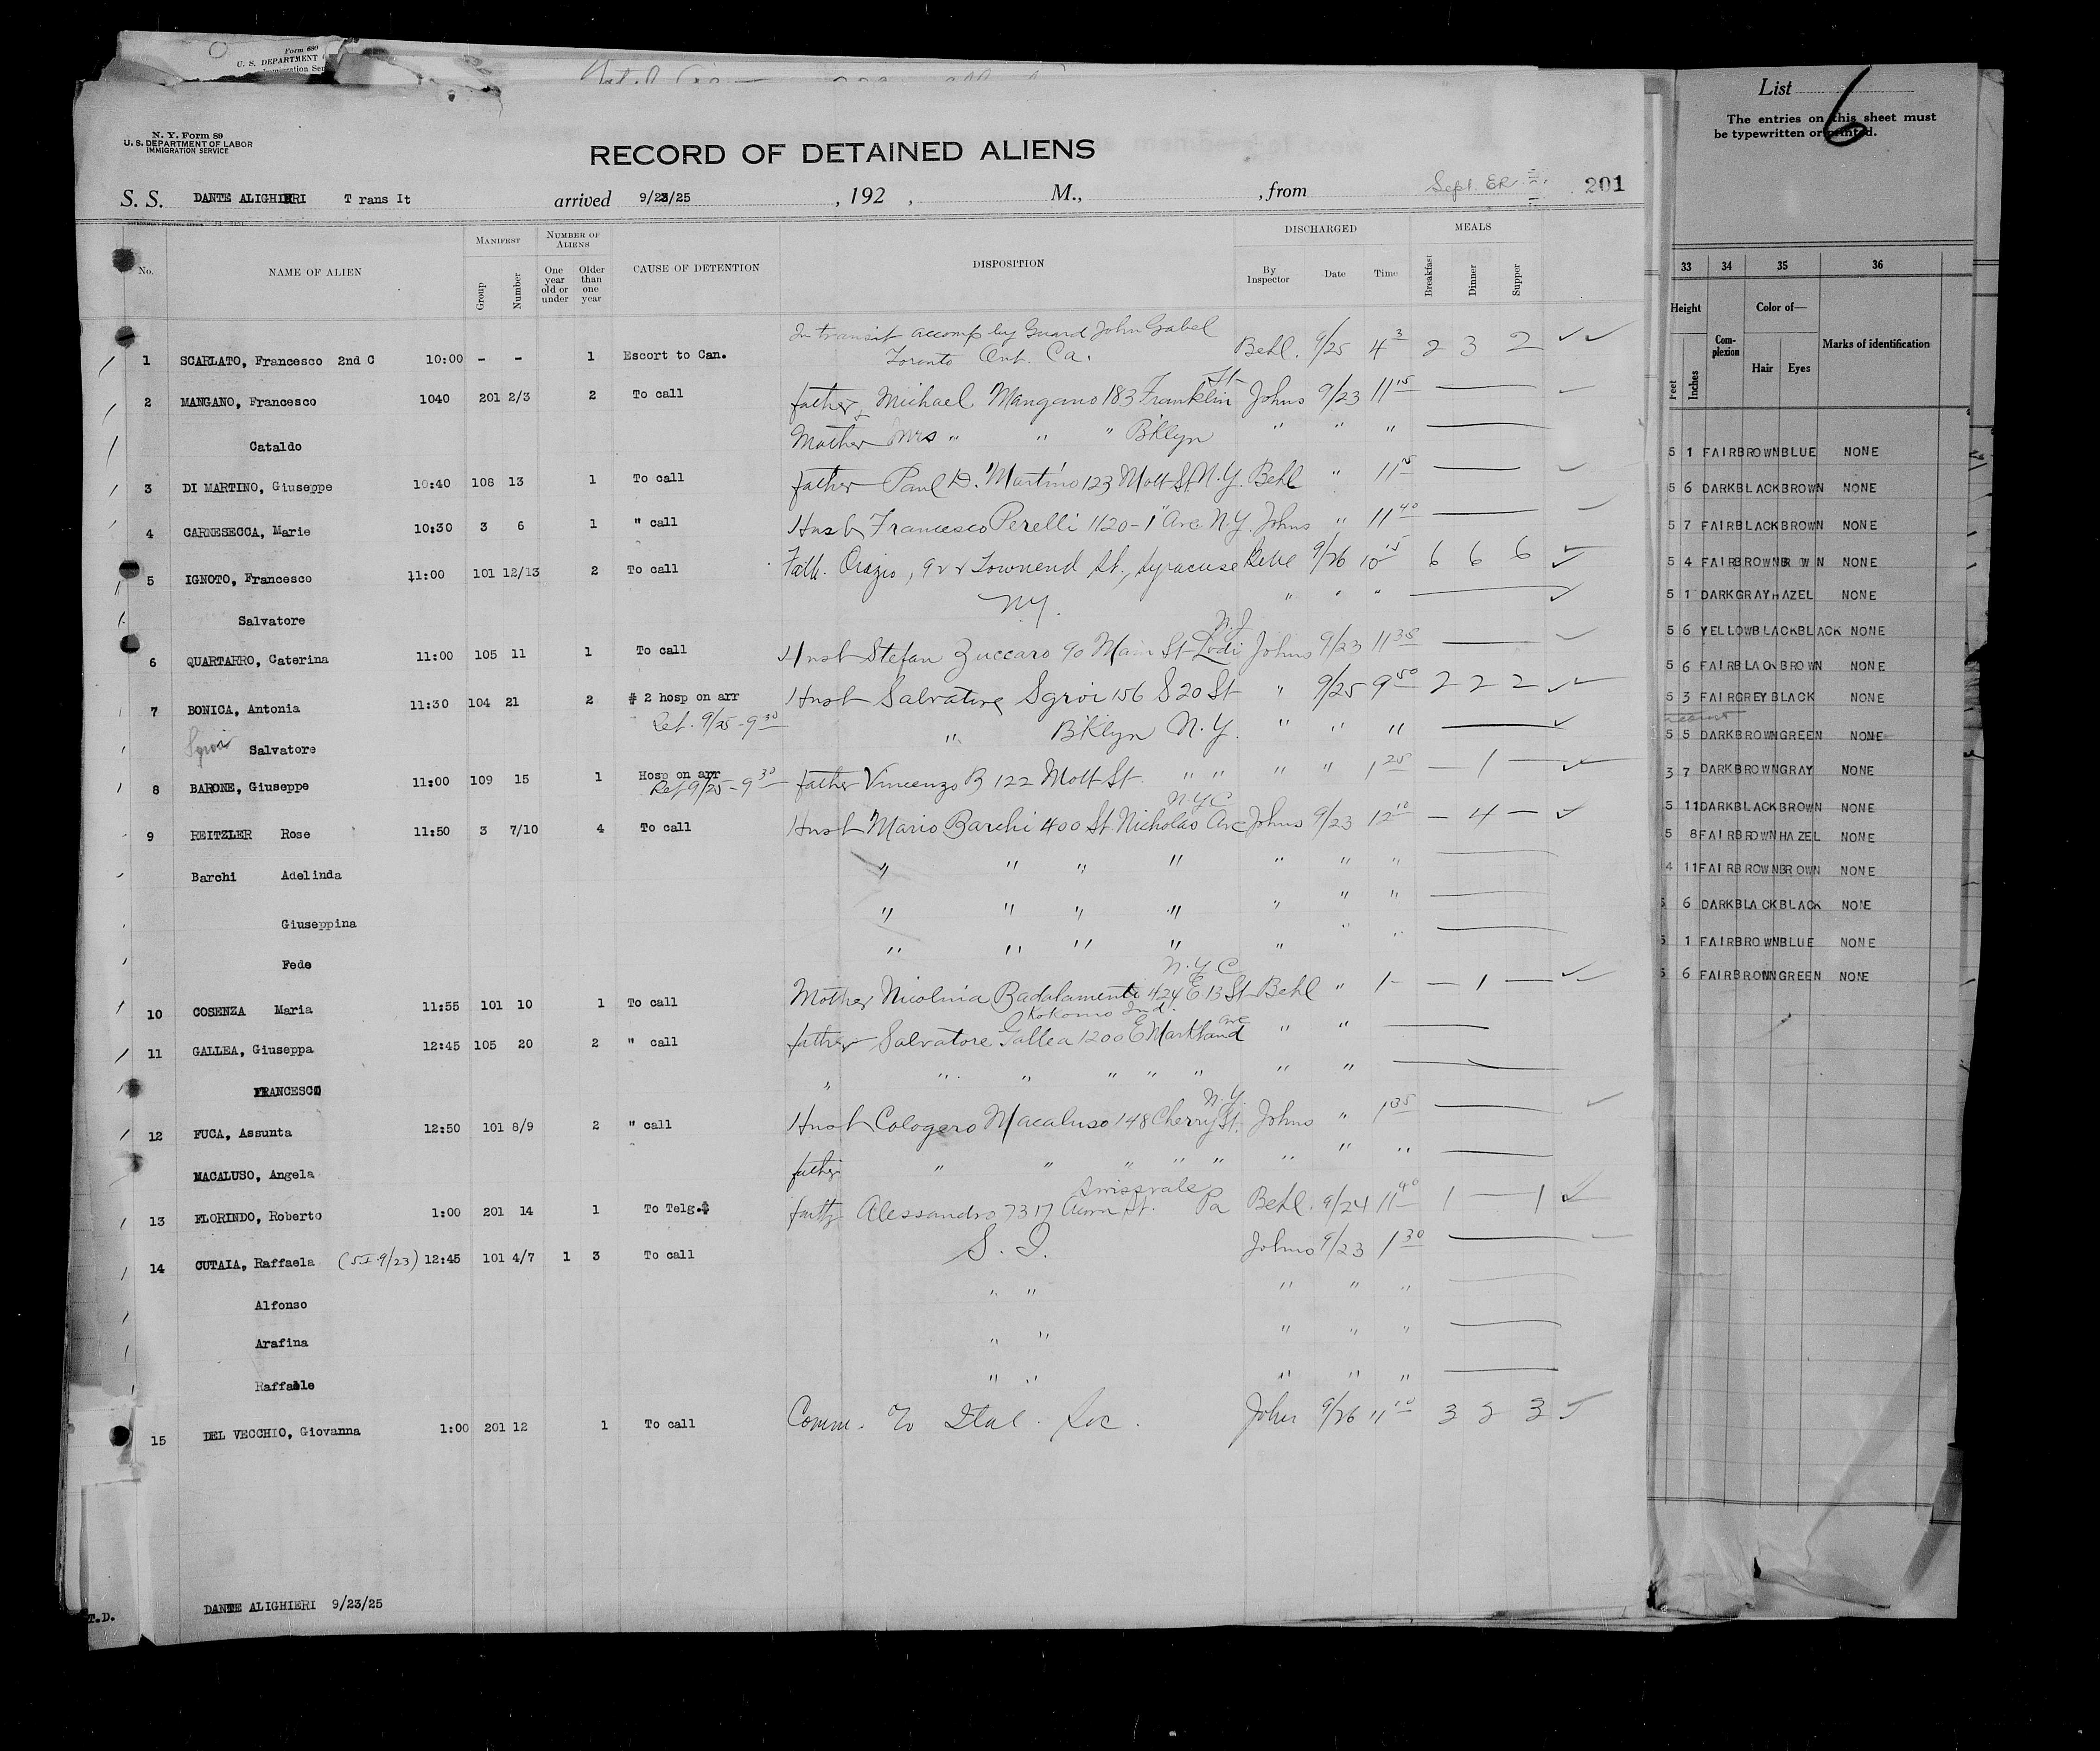 Form 689
U. S. DEPARTMENT
Immigration Ser
N. Y. Form 89
U. S. DEPARTMENT OF LABOR
IMMIGRATION SERVICE
RECORD OF DETAINED ALIENS
S. S. DANTE ALIGHIERI T rans It arrived 9/23/25 , 192 , M., , from Sept. 201
No. NAME OF ALIEN MANIFEST Group Number NUMBER OF ALIENS One year old or under Older than one year CAUSE OF DETENTION DISPOSITION DISCHARGED By Inspector Date Time MEALS Breakfast Dinner Supper
In transit accomp by Guard John Gabel
1 SCARLATO, Francesco 2nd C 10:00 - - 1 Escort to Can. Toronto Ont. Ca. Behl. 9/25 4 3 2 3 2
2 MANGANO, Francesco 1040 201 2/3 2 To call father + Michael Mangano 183 Franklin St Johns 9/23 11 15
Cataldo Mother Mrs " " " Bklyn " " "
3 DI MARTINO, Giuseppe 10:40 108 13 1 To call father Paul D. Martino 123 Mott St N.Y. Behl " 11 15
4 CARNESECCA, Marie 10:30 3 6 1 " call Husb Francesco Perelli 1120-1" Ave N.Y. Johns " 11 40
5 IGNOTO, Francesco 11:00 101 12/13 2 To call Fath. Orazio, 922 Townend St., Syracuse 9/26 10 15 6 6 6
Salvatore N.Y. " " "
6 QUARTARRO, Caterina 11:00 105 11 1 To call Husb Stefan Zuccaro 90 Main St Lodi N.J Johns 9/23 11 35
7 BONICA, Antonia 11:30 104 21 2 # 2 hosp on arr Husb Salvatore Sgroi 156 S 20 St " 9/25 9 50 2 2 2
Ret. 9/25 - 9 30
Sgroi Salvatore " Bklyn N.Y. " " "
8 BARONE, Giuseppe 11:00 109 15 1 Hosp on arr father Vincenzo B 122 Mott St. " " " " 1 25 — 1 —
Ret 9/25 - 9 30
9 REITZLER Rose 11:50 3 7/10 4 To call Husb Mario Barchi 400 St Nicholas Ave N.Y.C Johns 9/23 12 10 — 4 —
Barchi Adelinda " " " " " " "
Giuseppina " " " " " " "
Fede " " " " " " "
10 COSENZA Maria 11:55 101 10 1 To call Mother Nicolina Badalamenti 424 E 13 St N.Y.C Behl " 1 — — 1 —
11 GALLEA, Giuseppa 12:45 105 20 2 " call father Salvatore Gallea 1200 E Markland Ave Kokomo Ind. " "
FRANCESCO " " " " " " " "
12 FUCA, Assunta 12:50 101 8/9 2 " call Husb Cologero Macaluso 148 Cherry St. N.Y. Johns " 1 35
MACALUSO, Angela father " " " " " " " "
13 FLORINDO, Roberto 1:00 201 14 1 To Telg.$ fath Alessandro 7317 St. Swissvale Pa Behl. 9/24 11 40 1 — 1
14 CUTAIA, Raffaela (SI 9/23) 12:45 101 4/7 1 3 To call S. I. Johns 9/23 1 30
Alfonso " " " " "
Arafina " " " " "
Raffaele " " " " "
15 DEL VECCHIO, Giovanna 1:00 201 12 1 To call Comm. To Ital. Soc. Johns 9/26 11 10 3 3 3
DANTE ALIGHIERI 9/23/25
T.D.
List 6
The entries on this sheet must
be typewritten or printed.
33 34 35 36
Height Feet Inches Complexion Color of— Hair Eyes Marks of identification
5 1 FAIR BROWN BLUE NONE
5 6 DARK BLACK BROWN NONE
5 7 FAIR BLACK BROWN NONE
5 4 FAIR BROWN BROWN NONE
5 1 DARK GRAY HAZEL NONE
5 6 YELLOW BLACK BLACK NONE
5 6 FAIR BLACK BROWN NONE
5 3 FAIR GREY BLACK NONE
5 5 DARK BROWN GREEN NONE
3 7 DARK BROWN GRAY NONE
5 11 DARK BLACK BROWN NONE
5 8 FAIR BROWN HAZEL NONE
4 11 FAIR BROWN BROWN NONE
5 6 DARK BLACK BLACK NONE
5 1 FAIR BROWN BLUE NONE
5 6 FAIR BROWN GREEN NONE